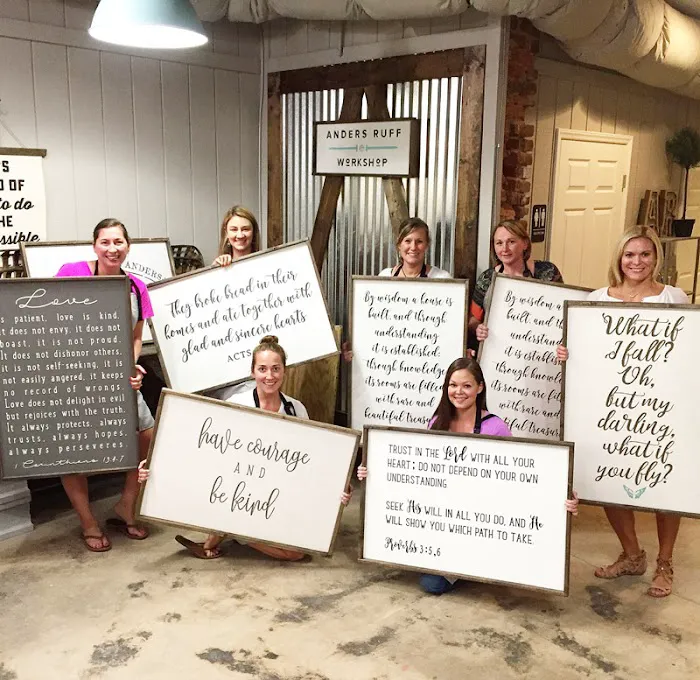 ANDERS RUFF
WORKSHOP
'S
D OF
to do
HE
possible
ANDERS
Love
s patient, love is kind.
it does not envy, it does not
boast, it is not proud.
It does not dishonor others,
it is not self-seeking, it is
not easily angered, it keeps
no record of wrongs.
Love does not delight in evil
but rejoices with the truth.
It always protects, always
trusts, always hopes,
always perseveres.
1 Corinthians 13:4-7
They broke bread in their
homes and ate together with
glad and sincere hearts
ACTS
have courage
AND
be kind
By wisdom a house is
built, and through
understanding
it is established;
through knowledge
its rooms are filled
with rare and
beautiful treasures
TRUST IN THE Lord WITH ALL YOUR
HEART; DO NOT DEPEND ON YOUR OWN
UNDERSTANDING
SEEK His WILL IN ALL YOU DO, AND He
WILL SHOW YOU WHICH PATH TO TAKE.
Proverbs 3:5,6
By wisdom a house
built, and th
understandin
it is establish
through knowl
its rooms are fi
with rare an
beautiful treasur
What if
I fall?
Oh,
but my
darling,
what if
you fly?